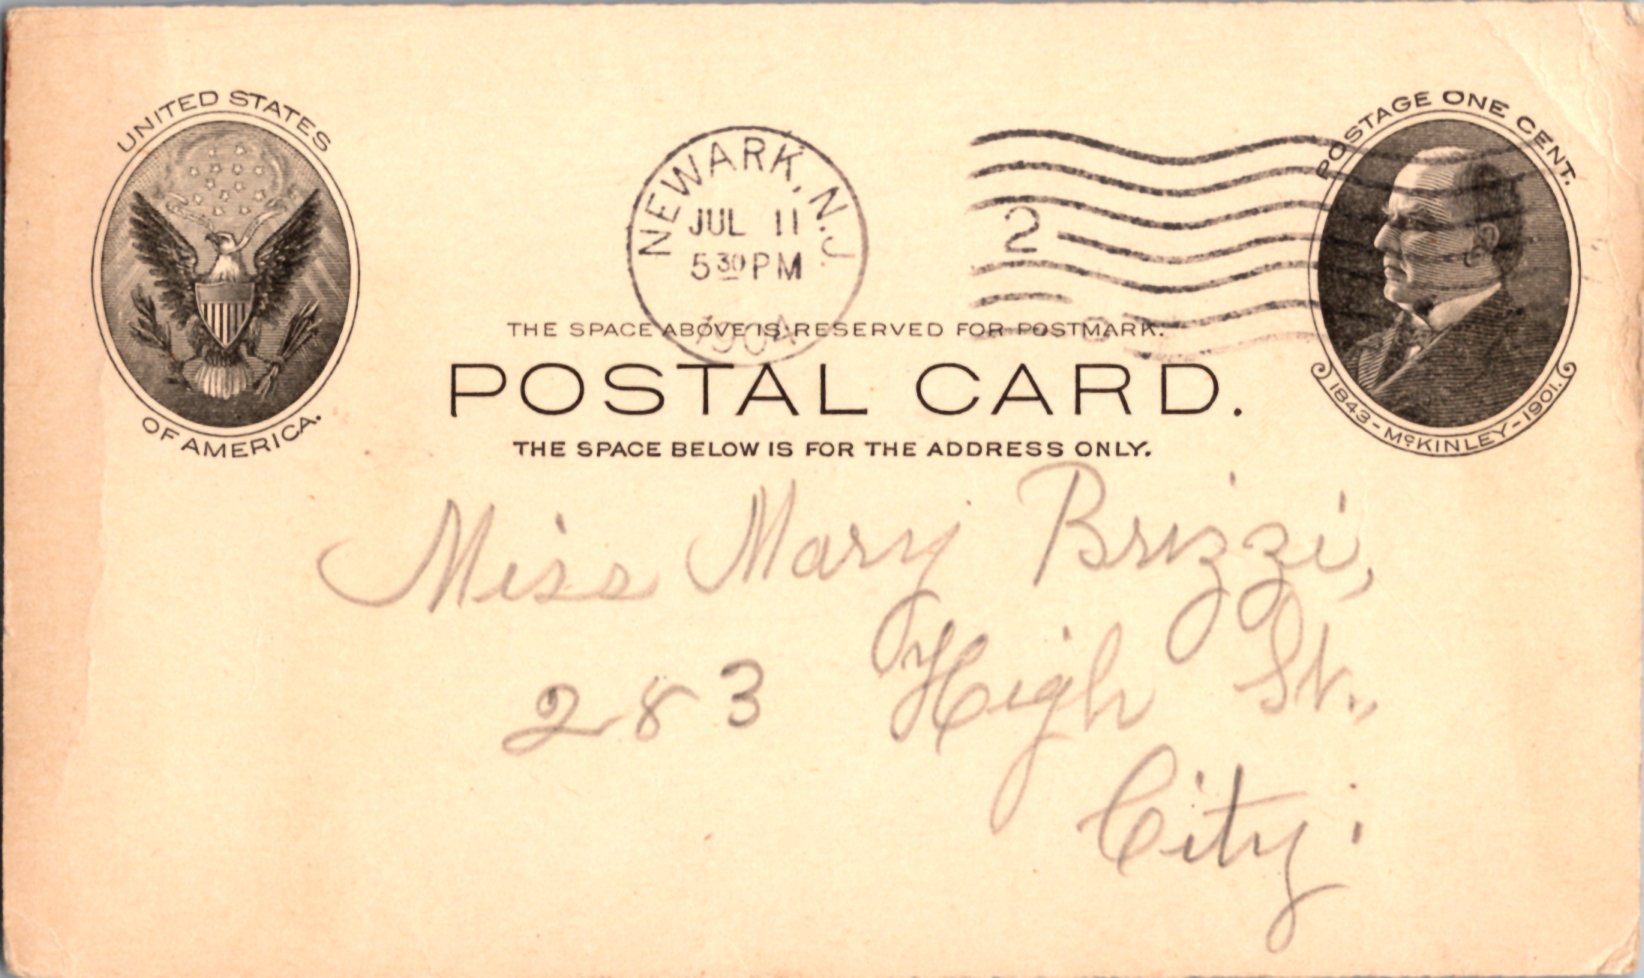 UNITED STATES
OF AMERICA.
NEWARK, N.J.
JUL 11
5 30 PM
1904
2
POSTAGE ONE CENT.
1843-McKINLEY-1901.
THE SPACE ABOVE IS RESERVED FOR POSTMARK.
POSTAL CARD.
THE SPACE BELOW IS FOR THE ADDRESS ONLY.
Miss Mary Brizzi,
283 High St.,
City.